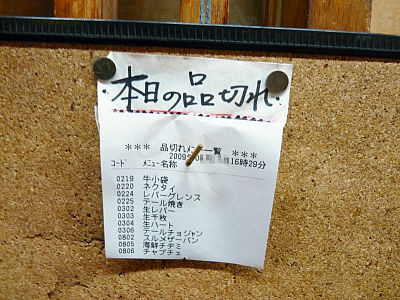 本日の品切れ
*** 品切れメ 一覧 ***
2009年 16時29分
コード メニュー名称
0219 牛小袋
0220 ネクタイ
0224 レバーグレンス
0225 テール焼き
0302 生レバー
0303 生千枚
0304 生ハート
0306 テールチョジャン
0802 スルメザーパン
0805 海鮮チヂミ
0806 チャプチェ